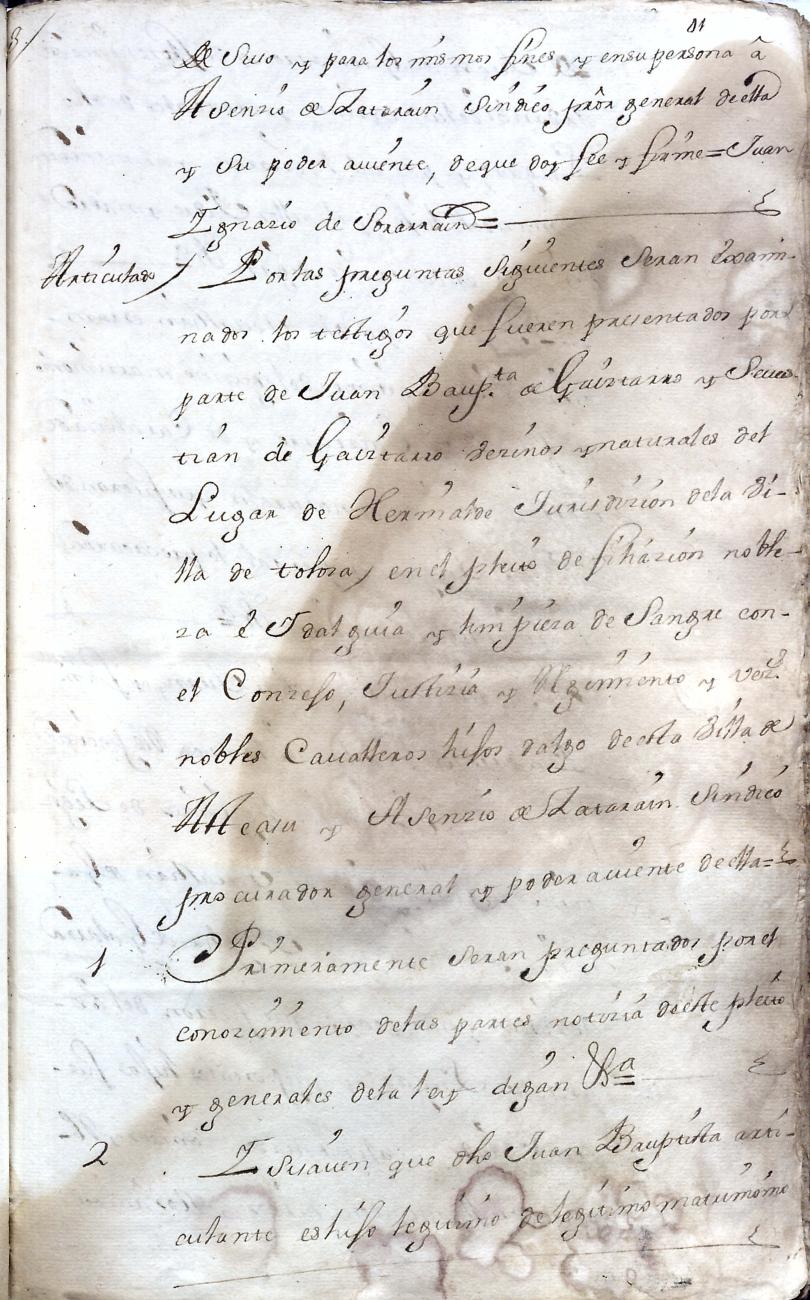 81
de suso y para los mismos fines y en su persona a
Asenzio de Zatarain sindico prõr general de ella
y su poder aviente, de que doy fee y firme = Juan
Ignazio de Sorarrain =
Articulado / Por las preguntas siguientes seran exami-
nados los testigos que fueren presentados por
parte de Juan Baup.ta de Gaiztarro y Sevas-
tian de Gaiztarro vezinos y naturales del
Lugar de Hernialde Jurisdizion de la Vi-
lla de tolosa, en el pleito de filiazion noble-
za è Idalguia y limpieza de Sangre con
el Conzejo, Justizia y Regimiento y vez.s
nobles Cavalleros hijos dalgo de esta Villa de
Alteasu y Asenzio de Zatarain Sindico
procurador general y poder aviente de ella =
1 Primeramente seran preguntados por el
conozimiento de las partes notizia de este pleito
y generales de la ley digan &a
2 Y si saven que dho Juan Bauptista arti-
culante es hijo legitimo de legitimo matrimonio